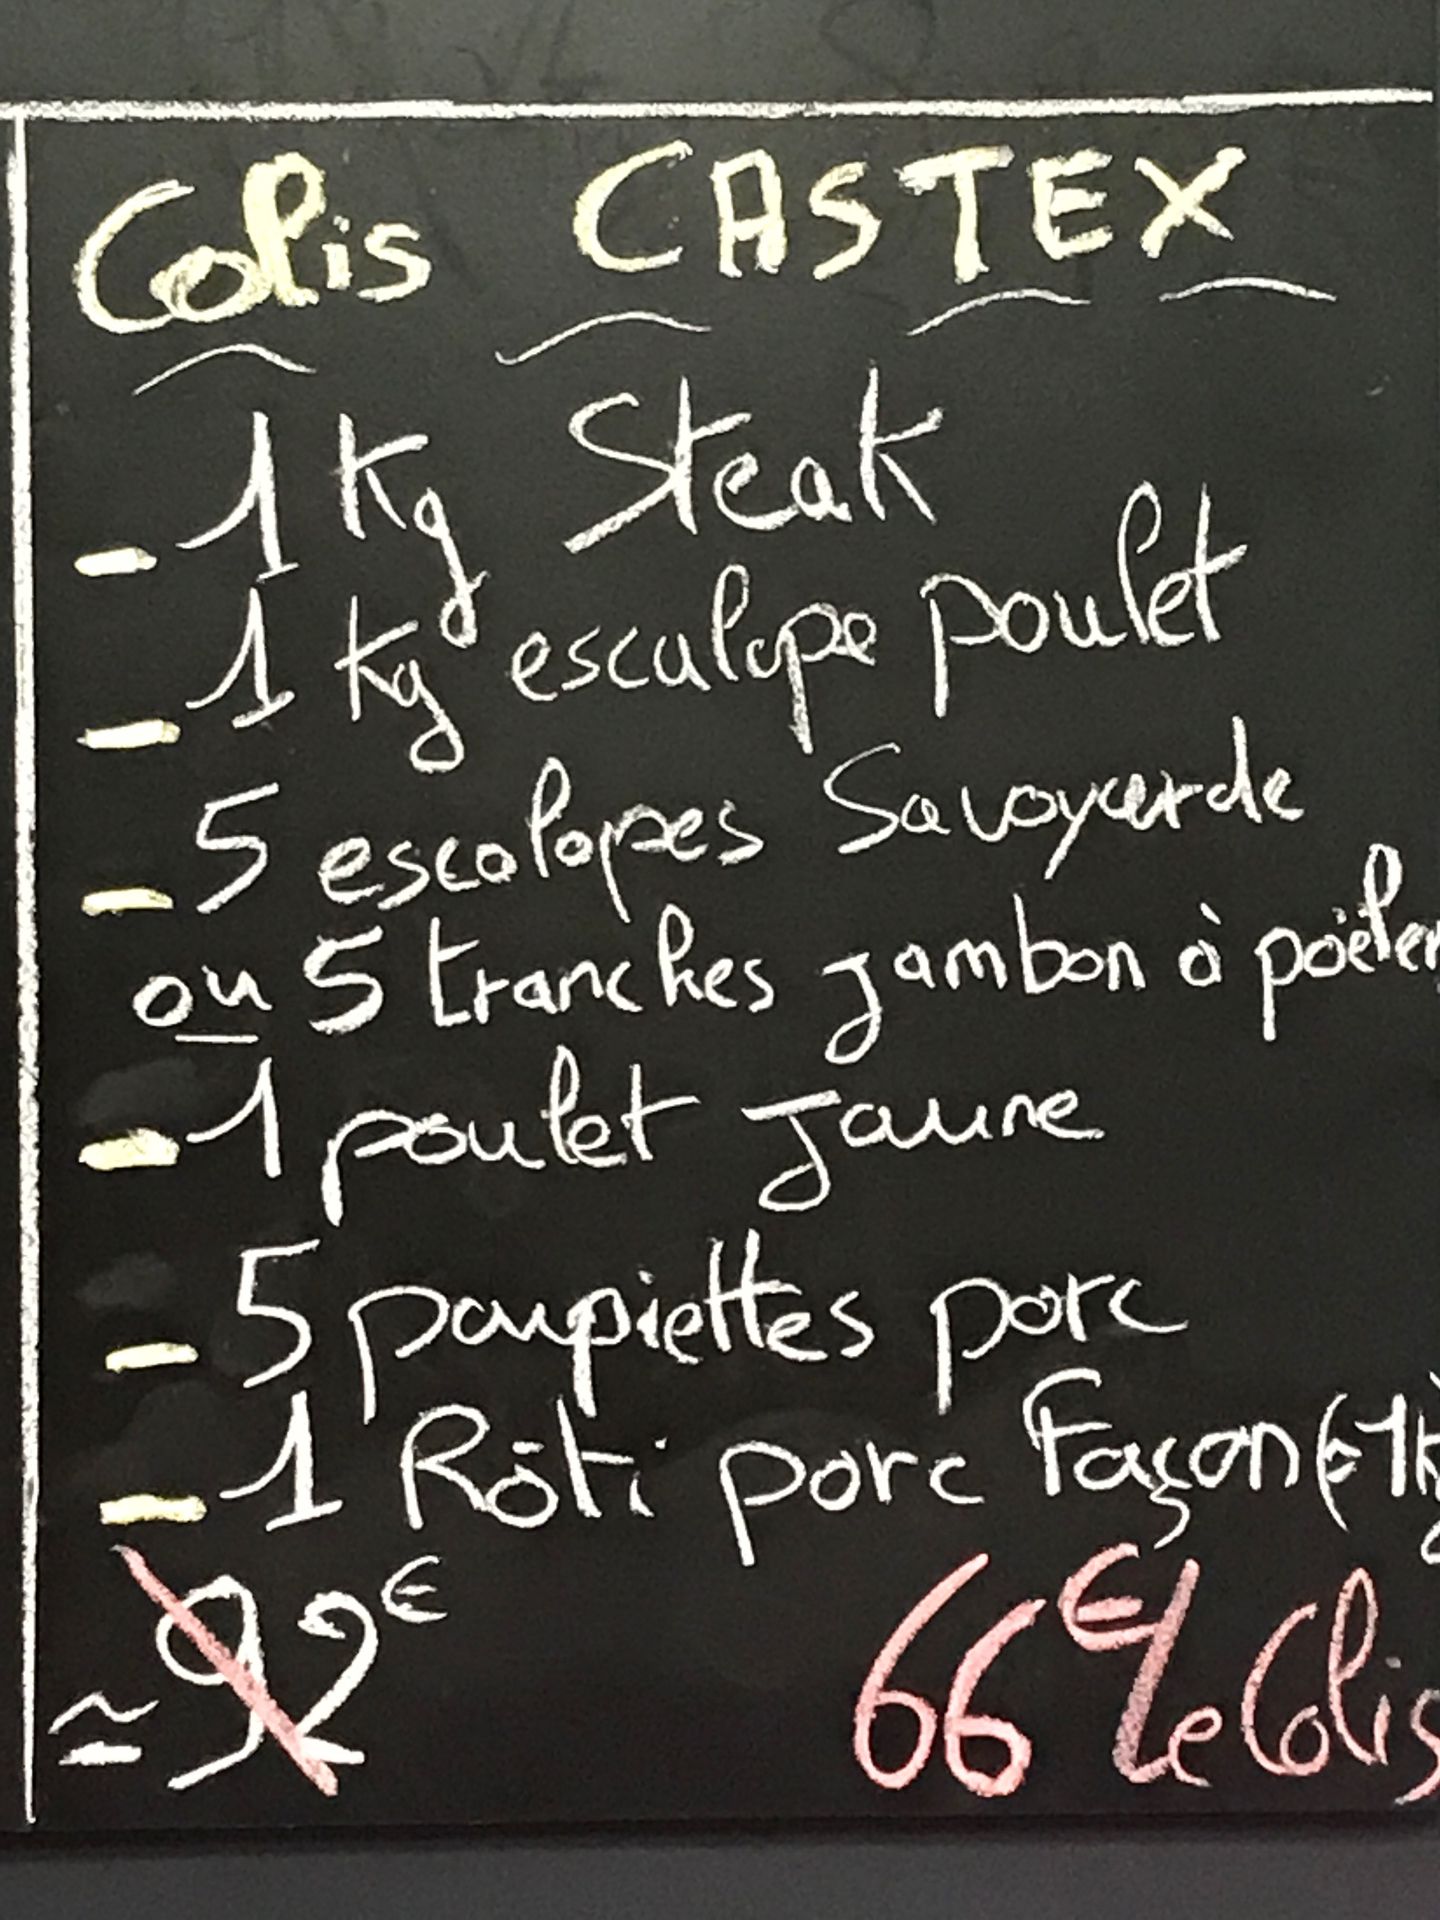 Colis CASTEX
- 1 Kg Steak
- 1 Kg escalope poulet
- 5 escalopes Savoyarde
ou 5 tranches jambon à poëler
- 1 poulet jaune
- 5 paupiettes porc
- 1 Rôti porc Façon (±1kg
≃ 92€ 66€/le Colis